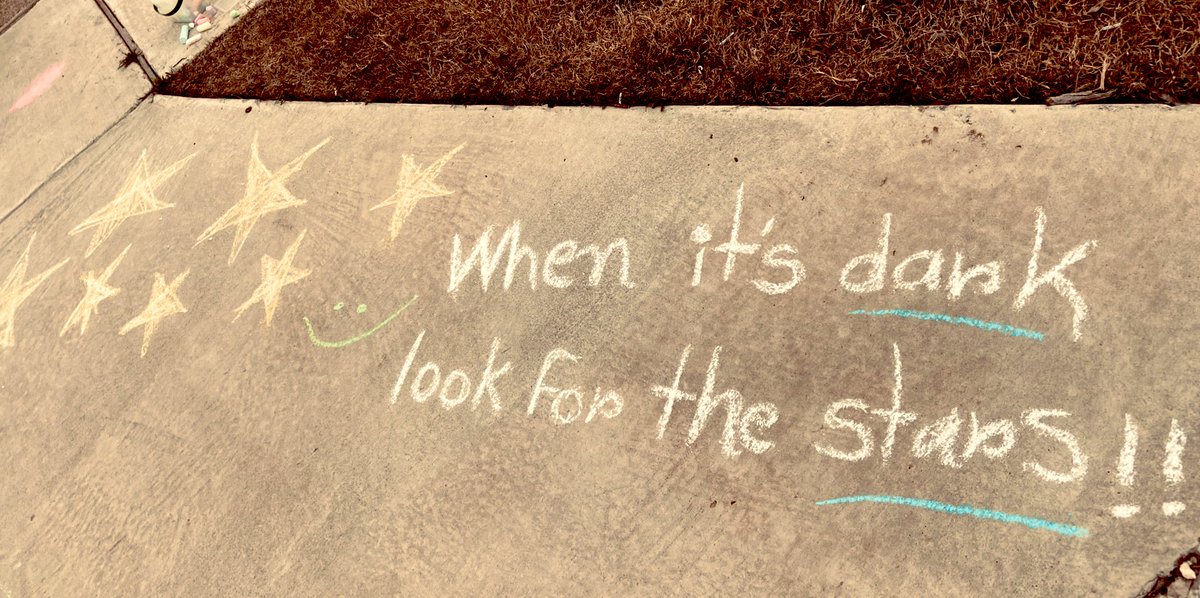 When it's dark
look for the stars!!